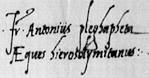 Fr Antonius pleghapheta
Æques hierosolymitanus: